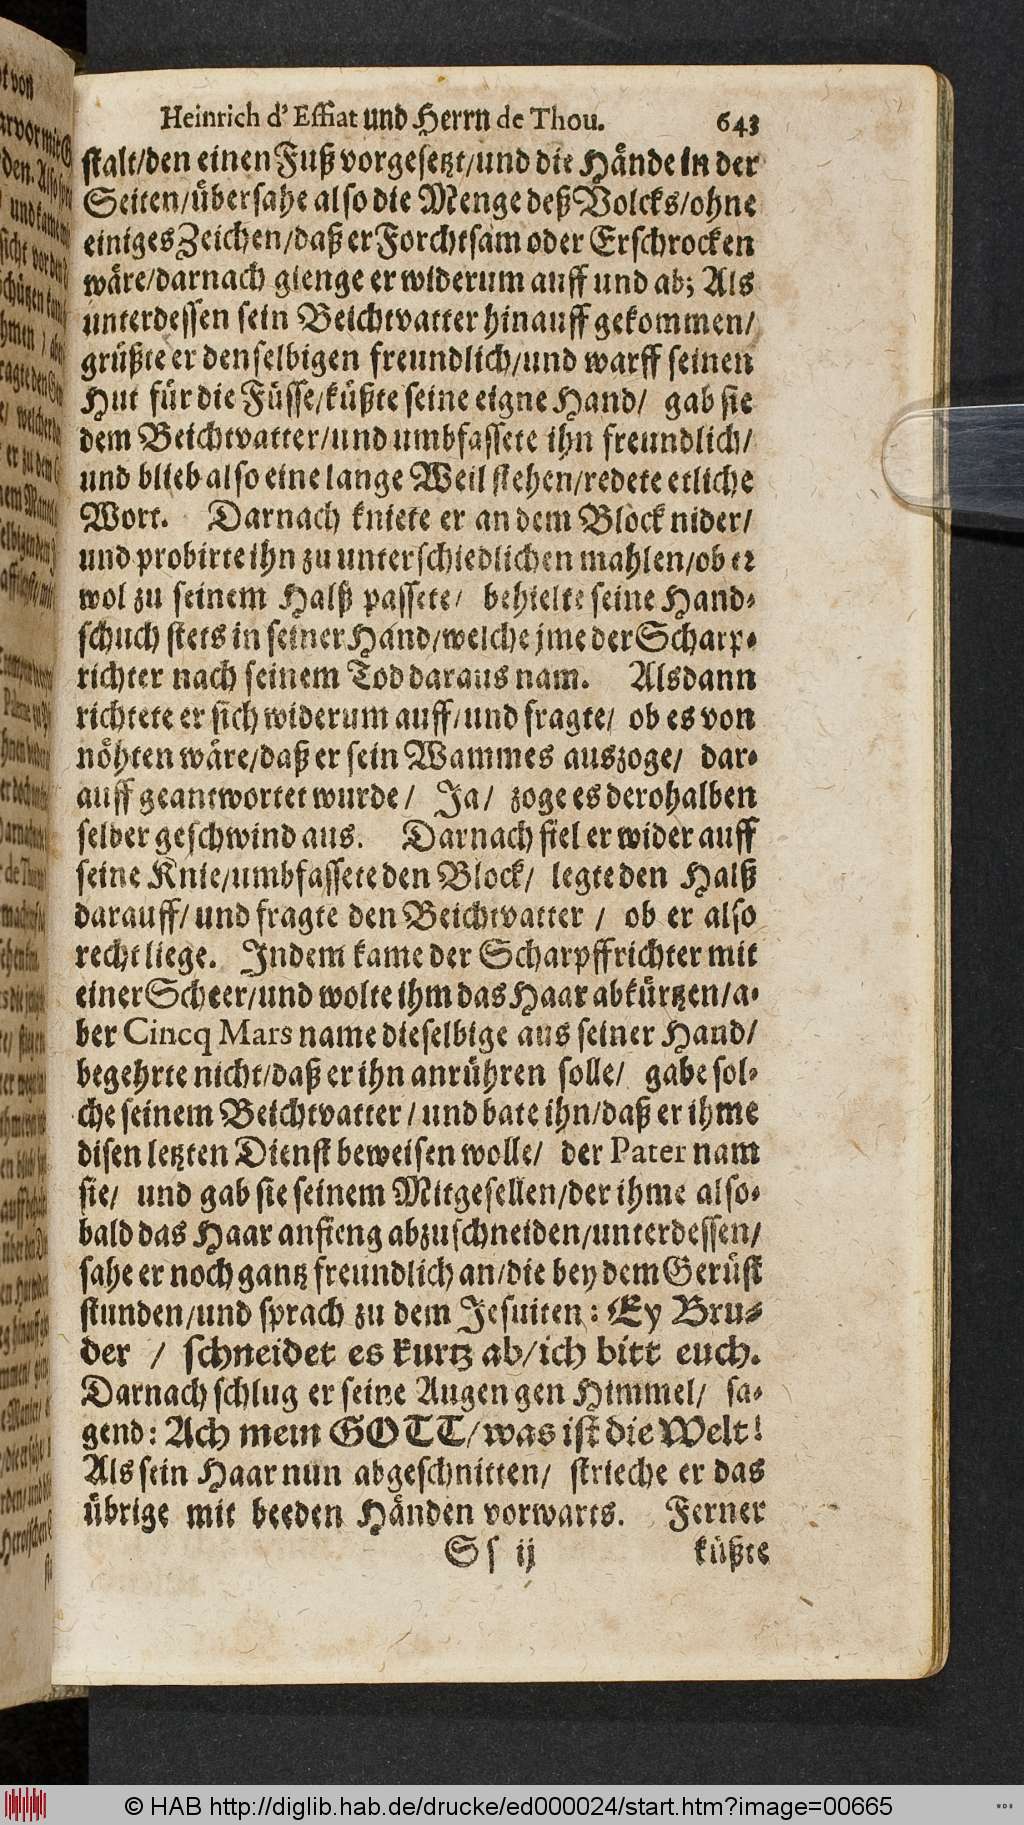 Heinrich d' Effiat und Herrn de Thou. 643
stalt/den einen Fuß vorgesetzt/und die Hände in der
Seiten/übersahe also die Menge deß Volcks/ohne
einiges Zeichen/daß er Forchtsam oder Erschrocken
wäre/darnach gienge er widerum auff und ab; Als
unterdessen sein Beichtvatter hinauff gekommen/
grüßte er denselbigen freundlich/und warff seinen
Hut für die Füsse/küßte seine eigne Hand/ gab sie
dem Beichtvatter/und umbfassete ihn freundlich/
und blieb also eine lange Weil stehen/redete etliche
Wort. Darnach kniete er an dem Block nider/
und probirte ihn zu unterschiedlichen mahlen/ob er
wol zu seinem Halß passete/ behielte seine Hand-
schuch stets in seiner Hand/welche jme der Scharp-
richter nach seinem Tod daraus nam. Alsdann
richtete er sich widerum auff/und fragte/ ob es von
nöhten wäre/daß er sein Wammes auszoge/ dar-
auff geantwortet wurde/ Ja/ zoge es derohalben
selber geschwind aus. Darnach fiel er wider auff
seine Knie/umbfassete den Block/ legte den Halß
darauff/ und fragte den Beichtvatter / ob er also
recht liege. Indem kame der Scharpffrichter mit
einer Scheer/und wolte ihm das Haar abkürtzen/a-
ber Cincq Mars name dieselbige aus seiner Hand/
begehrte nicht/daß er ihn anrühren solle/ gabe sol-
che seinem Beichtvatter/und bate ihn/daß er ihme
disen letzten Dienst beweisen wolle/ der Pater nam
sie/ und gab sie seinem Mitgesellen/der ihme also-
bald das Haar anfieng abzuschneiden/unterdessen/
sahe er noch gantz freundlich an/die bey dem Gerüst
stunden/und sprach zu dem Jesuiten: Ey Bru-
der / schneidet es kurtz ab/ich bitt euch.
Darnach schlug er seine Augen gen Himmel/ sa-
gend: Ach mein GOTT/was ist die Welt!
Als sein Haar nun abgeschnitten/ strieche er das
übrige mit beeden Händen vorwarts. Ferner
Ss ij küßte
© HAB http://diglib.hab.de/drucke/ed000024/start.htm?image=00665